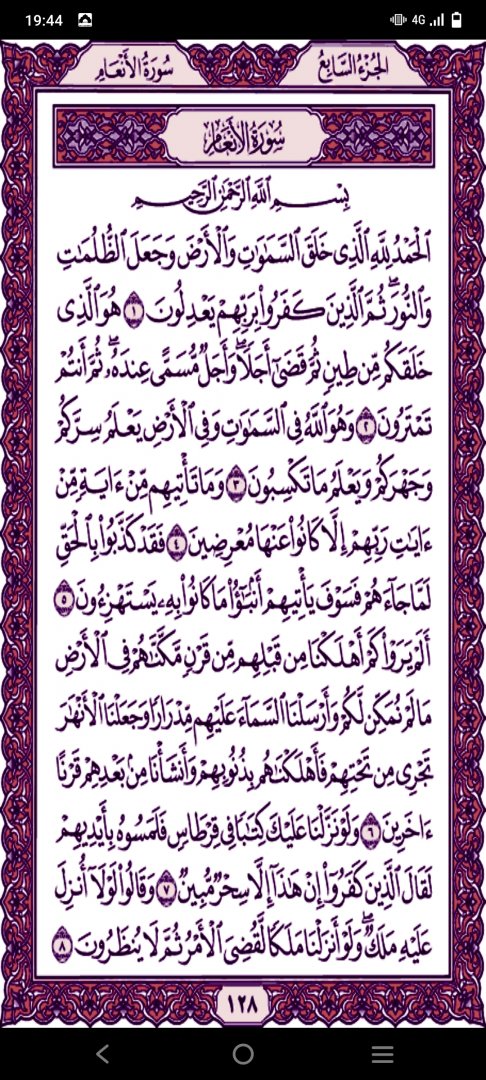 19:44 4G
سُورَةُ الأَنْعَام الجُزءُ السَّابِعُ
سُورَةُ الأَنْعَام
بِسْمِ ٱللَّهِ ٱلرَّحْمَٰنِ ٱلرَّحِيمِ
ٱلْحَمْدُ لِلَّهِ ٱلَّذِى خَلَقَ ٱلسَّمَٰوَٰتِ وَٱلْأَرْضَ وَجَعَلَ ٱلظُّلُمَٰتِ
وَٱلنُّورَ ۖ ثُمَّ ٱلَّذِينَ كَفَرُوا۟ بِرَبِّهِمْ يَعْدِلُونَ ١ هُوَ ٱلَّذِى
خَلَقَكُم مِّن طِينٍ ثُمَّ قَضَىٰٓ أَجَلًا ۖ وَأَجَلٌ مُّسَمًّى عِندَهُۥ ۖ ثُمَّ أَنتُمْ
تَمْتَرُونَ ٢ وَهُوَ ٱللَّهُ فِى ٱلسَّمَٰوَٰتِ وَفِى ٱلْأَرْضِ يَعْلَمُ سِرَّكُمْ
وَجَهْرَكُمْ وَيَعْلَمُ مَا تَكْسِبُونَ ٣ وَمَا تَأْتِيهِم مِّنْ ءَايَةٍ مِّنْ
ءَايَٰتِ رَبِّهِمْ إِلَّا كَانُوا۟ عَنْهَا مُعْرِضِينَ ٤ فَقَدْ كَذَّبُوا۟ بِٱلْحَقِّ
لَمَّا جَآءَهُمْ فَسَوْفَ يَأْتِيهِمْ أَنۢبَٰٓؤُا۟ مَا كَانُوا۟ بِهِۦ يَسْتَهْزِءُونَ ٥
أَلَمْ يَرَوْا۟ كَمْ أَهْلَكْنَا مِن قَبْلِهِم مِّن قَرْنٍ مَّكَّنَّٰهُمْ فِى ٱلْأَرْضِ
مَا لَمْ نُمَكِّن لَّكُمْ وَأَرْسَلْنَا ٱلسَّمَآءَ عَلَيْهِم مِّدْرَارًا وَجَعَلْنَا ٱلْأَنْهَٰرَ
تَجْرِى مِن تَحْتِهِمْ فَأَهْلَكْنَٰهُم بِذُنُوبِهِمْ وَأَنشَأْنَا مِنۢ بَعْدِهِمْ قَرْنًا
ءَاخَرِينَ ٦ وَلَوْ نَزَّلْنَا عَلَيْكَ كِتَٰبًا فِى قِرْطَاسٍ فَلَمَسُوهُ بِأَيْدِيهِمْ
لَقَالَ ٱلَّذِينَ كَفَرُوٓا۟ إِنْ هَٰذَآ إِلَّا سِحْرٌ مُّبِينٌ ٧ وَقَالُوا۟ لَوْلَآ أُنزِلَ
عَلَيْهِ مَلَكٌ ۖ وَلَوْ أَنزَلْنَا مَلَكًا لَّقُضِىَ ٱلْأَمْرُ ثُمَّ لَا يُنظَرُونَ ٨
١٢٨